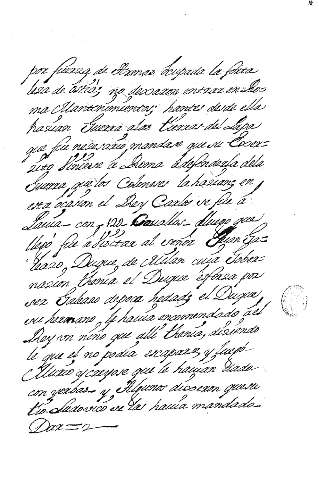 por fuerza de Armas Ocupado la forta
leza de ostia; no dexaron entrar en Ro
ma Mantenimientos; hantes desde ella
hazian Guerra a las tierras del Papa
que fue nezesario mandar que su Exer
zito Viniesse a Roma a defenderla de la
Guerra que los Coloneses la hazian; en
esta ocasion el Rey Carlos se fue â
Pauia con 120 Cauallos luego que
llegó fue a Visitar al señor Juan Ga
leazo, Duque de Milan cuya Gober
nazion thenia el Duque
ser Galeazo de poca hedad; el Duque
su hermano, le hauia encomendado âl
Rey un niño que alli thenia, diziendo
le que el no podia escapar, y luego
Murio y creyose que le hauian dado
con yerbas y Algunos dixeron que su
tio Ludovico se las hauia mandado
Dar =